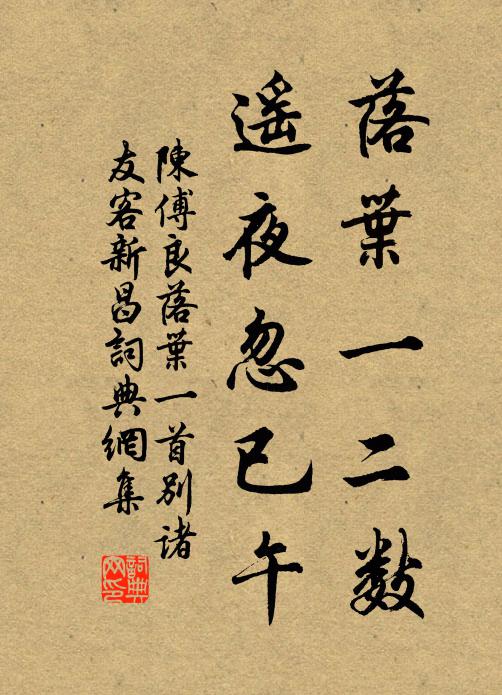 落葉一二數
遥夜忽已午
陳傅良落葉一首別諸
友客新昌詞典網集
詞典网印